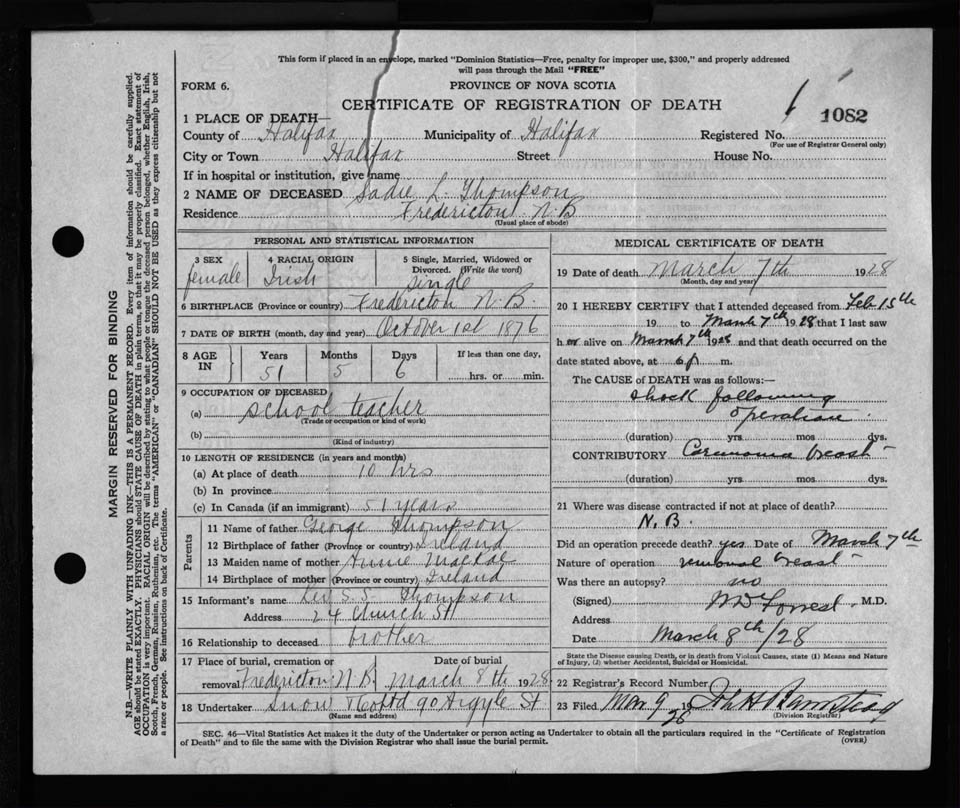 This form if placed in an envelope, marked "Dominion Statistics—Free, penalty for improper use, $300," and properly addressed
will pass through the Mail "FREE"
FORM 6.
PROVINCE OF NOVA SCOTIA
CERTIFICATE OF REGISTRATION OF DEATH
1082
1 PLACE OF DEATH—
County of Halifax Municipality of Halifax Registered No.
(For use of Registrar General only)
City or Town Halifax Street House No.
If in hospital or institution, give name
2 NAME OF DECEASED Sadie L. Thompson
Residence Fredericton N.B
(Usual place of abode)
PERSONAL AND STATISTICAL INFORMATION
3 SEX 4 RACIAL ORIGIN 5 Single, Married, Widowed or
Divorced. (Write the word)
female Irish single
6 BIRTHPLACE (Province or country) Fredericton N.B.
7 DATE OF BIRTH (month, day and year) October 1st 1876
8 AGE IN Years Months Days If less than one day,
51 5 6 hrs. or min.
9 OCCUPATION OF DECEASED
(a) school teacher
(Trade or occupation or kind of work)
(b)
(Kind of industry)
10 LENGTH OF RESIDENCE (in years and months)
(a) At place of death 10 hrs
(b) In province
(c) In Canada (if an immigrant) 51 years
Parents
11 Name of father George Thompson
12 Birthplace of father (Province or country) Ireland
13 Maiden name of mother Annie
14 Birthplace of mother (Province or country) Ireland
15 Informant's name S. Thompson
Address 24 Church St
16 Relationship to deceased brother
17 Place of burial, cremation or Date of burial
removal Fredericton N.B. March 8th 1928
18 Undertaker Snow & Co Ltd 90 Argyle St
(Name and address)
MEDICAL CERTIFICATE OF DEATH
19 Date of death March 7th 1928
(Month, day and year)
20 I HEREBY CERTIFY that I attended deceased from Feb 15th
19 to March 7th 1928 that I last saw
h er alive on March 7th 1928 and that death occurred on the
date stated above, at 6 p m.
The CAUSE of DEATH was as follows:—
shock following
operation
(duration) yrs mos dys.
CONTRIBUTORY Carcinoma breast
(duration) yrs mos dys.
21 Where was disease contracted if not at place of death?
N.B.
Did an operation precede death? yes Date of March 7th
Nature of operation removal breast
Was there an autopsy? no
(Signed) W D Forrest M.D.
Address
Date March 8th/28
State the Disease causing Death, or in death from Violent Causes, state (1) Means and Nature
of Injury, (2) whether Accidental, Suicidal or Homicidal.
22 Registrar's Record Number
23 Filed Mar 9 1928
(Division Registrar)
SEC. 46—Vital Statistics Act makes it the duty of the Undertaker or person acting as Undertaker to obtain all the particulars required in the "Certificate of Registration
of Death" and to file the same with the Division Registrar who shall issue the burial permit.
(OVER)
MARGIN RESERVED FOR BINDING
N.B.—WRITE PLAINLY WITH UNFADING INK—THIS IS A PERMANENT RECORD. Every item of information should be carefully supplied.
AGE should be stated EXACTLY. PHYSICIANS should STATE CAUSE OF DEATH in plain terms, so that it may be properly classified. Exact statement of
OCCUPATION is very important. RACIAL ORIGIN will be described by stating to what people or tongue the deceased person belonged, whether English, Irish,
Scotch, French, German, Russian, Ruthenian, etc. The terms "AMERICAN" or "CANADIAN" SHOULD NOT BE USED as they express citizenship but not
a race or people. See instructions on back of Certificate.